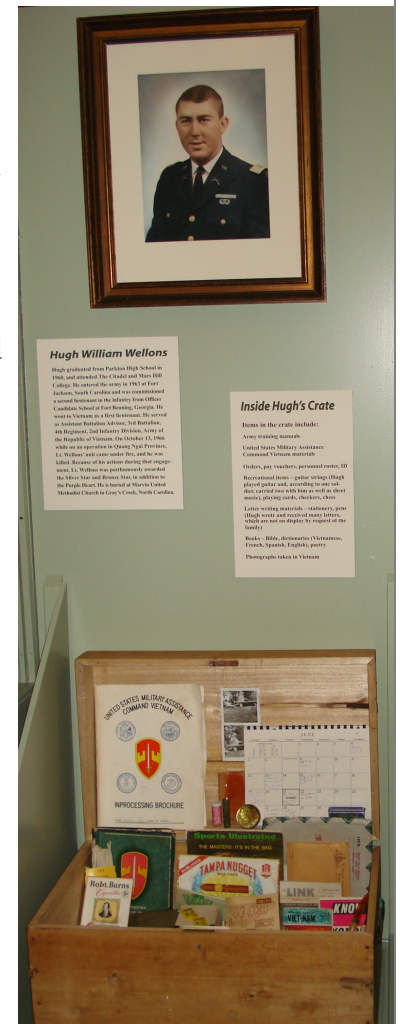 Hugh William Wellons
Hugh graduated from Parkton High School in
1960, and attended The Citadel and Mars Hill
College. He entered the army in 1963 at Fort
Jackson, South Carolina and was commissioned
a second lieutenant in the infantry from Officer
Candidate School at Fort Benning, Georgia. He
went to Vietnam as a first lieutenant. He served
as Assistant Battalion Advisor, 3rd Battalion,
4th Regiment, 2nd Infantry Division, Army of
the Republic of Vietnam. On October 13, 1966
while on an operation in Quang Ngai Province,
Lt. Wellons' unit came under fire, and he was
killed. Because of his actions during that engage-
ment, Lt. Wellons was posthumously awarded
the Silver Star and Bronze Star, in addition to
the Purple Heart. He is buried at Marvin United
Methodist Church in Gray's Creek, North Carolina.
Inside Hugh's Crate
Items in the crate include:
Army training manuals
United States Military Assistance
Command Vietnam materials
Orders, pay vouchers, personnel roster, ID
Recreational items – guitar strings (Hugh
played guitar and, according to one sol-
dier, carried two with him as well as sheet
music), playing cards, checkers, chess
Letter writing materials – stationery, pens
(Hugh wrote and received many letters,
which are not on display by request of the
family)
Books – Bible, dictionaries (Vietnamese,
French, Spanish, English), poetry
Photographs taken in Vietnam
UNITED STATES MILITARY ASSISTANCE
COMMAND VIETNAM
INPROCESSING BROCHURE
JUNE
Sports Illustrated
THE MASTERS: IT'S IN THE BAG
TAMPA NUGGET
Robt. Burns
Cigarillos
LINK
VIET-NAM
KNOW